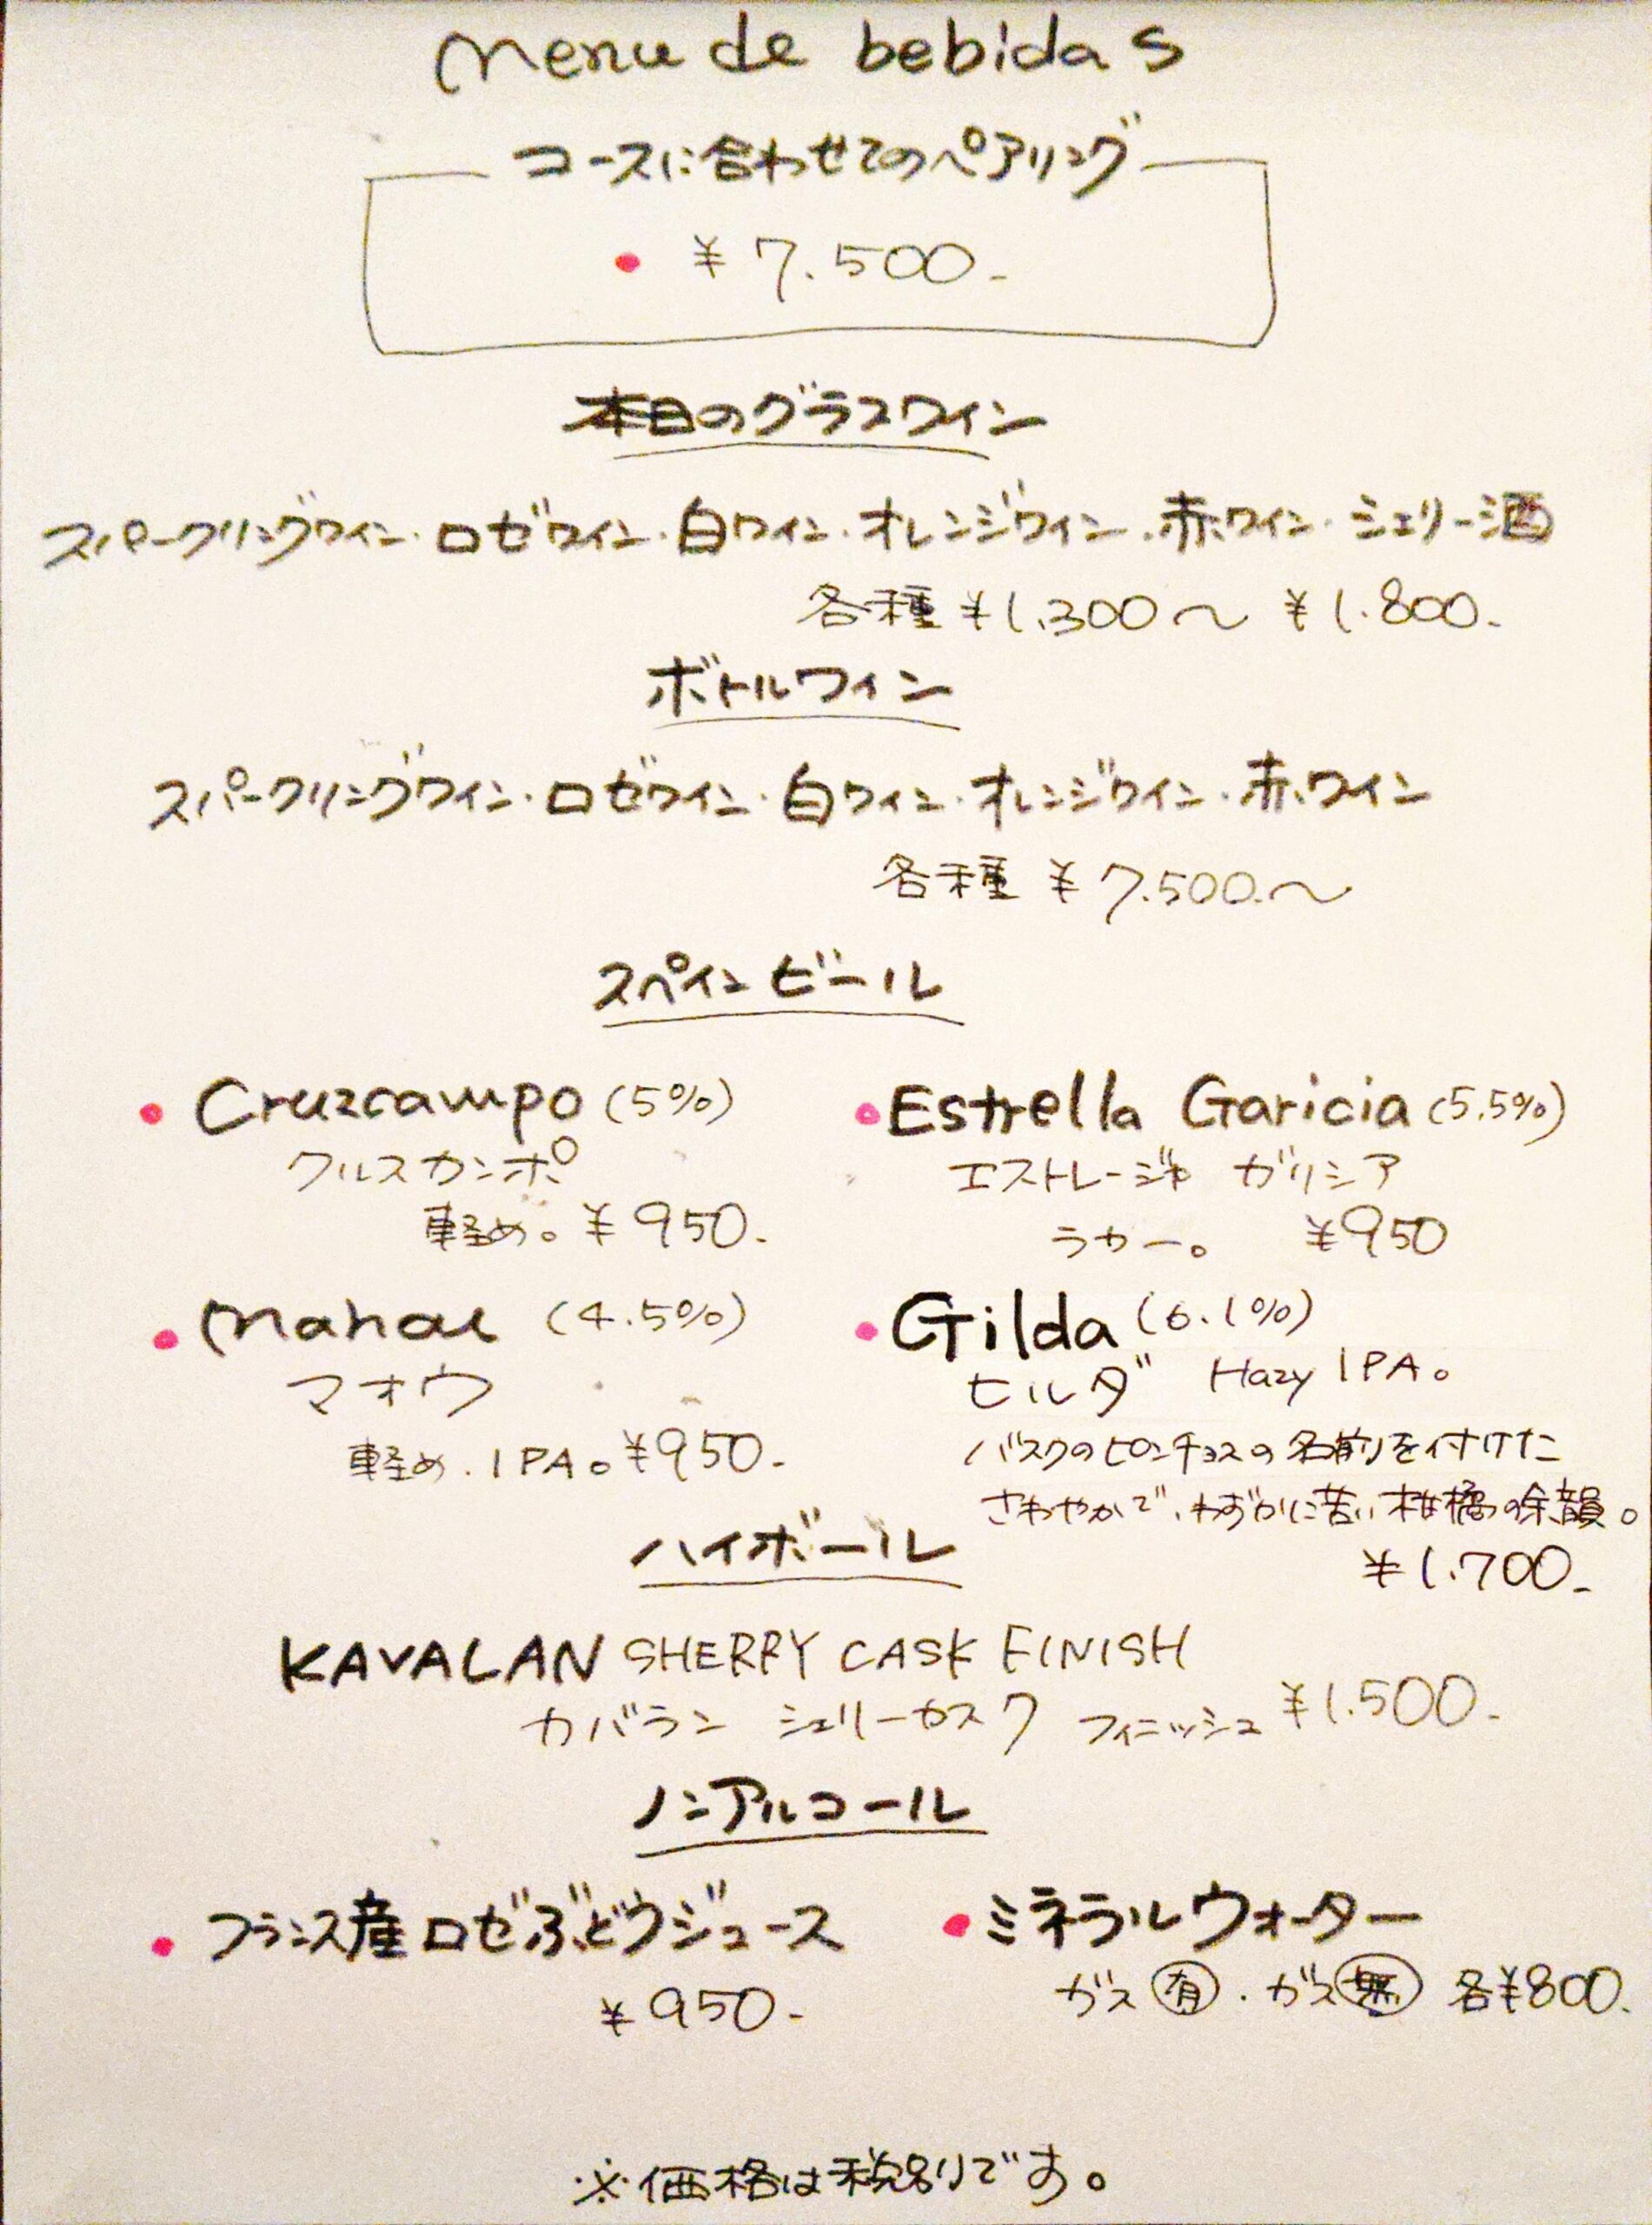 Menu de bebidas
コースに合わせてのペアリング
• ¥7.500-
本日のグラスワイン
スパークリングワイン・ロゼワイン・白ワイン・オレンジワイン・赤ワイン・シェリー酒
各種 ¥1.300〜 ¥1.800-
ボトルワイン
スパークリングワイン・ロゼワイン・白ワイン・オレンジワイン・赤ワイン
各種 ¥7.500.〜
スペインビール
• Cruzcampo (5%)
クルスカンポ
軽め。¥950-
• Estrella Garicia (5.5%)
エストレージャ ガリシア
ラガー。 ¥950
• Mahou (4.5%)
マオウ
軽め.IPA。¥950-
• Gilda (6.1%)
ヒルダ Hazy IPA。
バスクのピンチョスの名前を付けた
さわやかで、わずかに苦い柑橘の余韻。
¥1.700-
ハイボール
KAVALAN SHERRY CASK FINISH
カバラン シェリーカスク フィニッシュ ¥1.500-
ノンアルコール
• フランス産ロゼぶどうジュース
¥950-
• ミネラルウォーター
ガス有・ガス無 各¥800.
※価格は税別です。